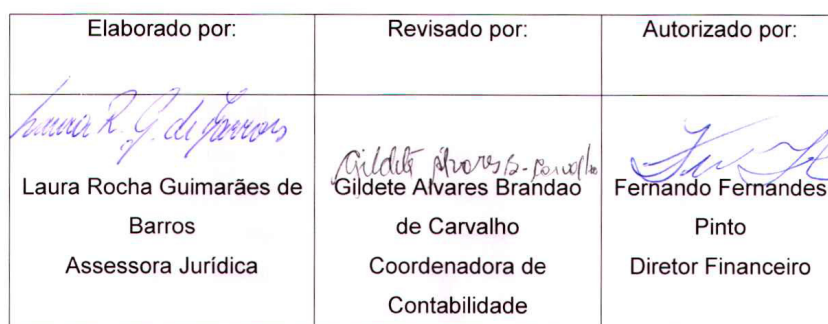 Elaborado por:
Revisado por:
Autorizado por:
Laura R. G. de Barros
Laura Rocha Guimarães de
Barros
Assessora Jurídica
Gildete Alvares B. Carvalho
Gildete Alvares Brandao
de Carvalho
Coordenadora de
Contabilidade
Fernando Fernandes
Pinto
Diretor Financeiro